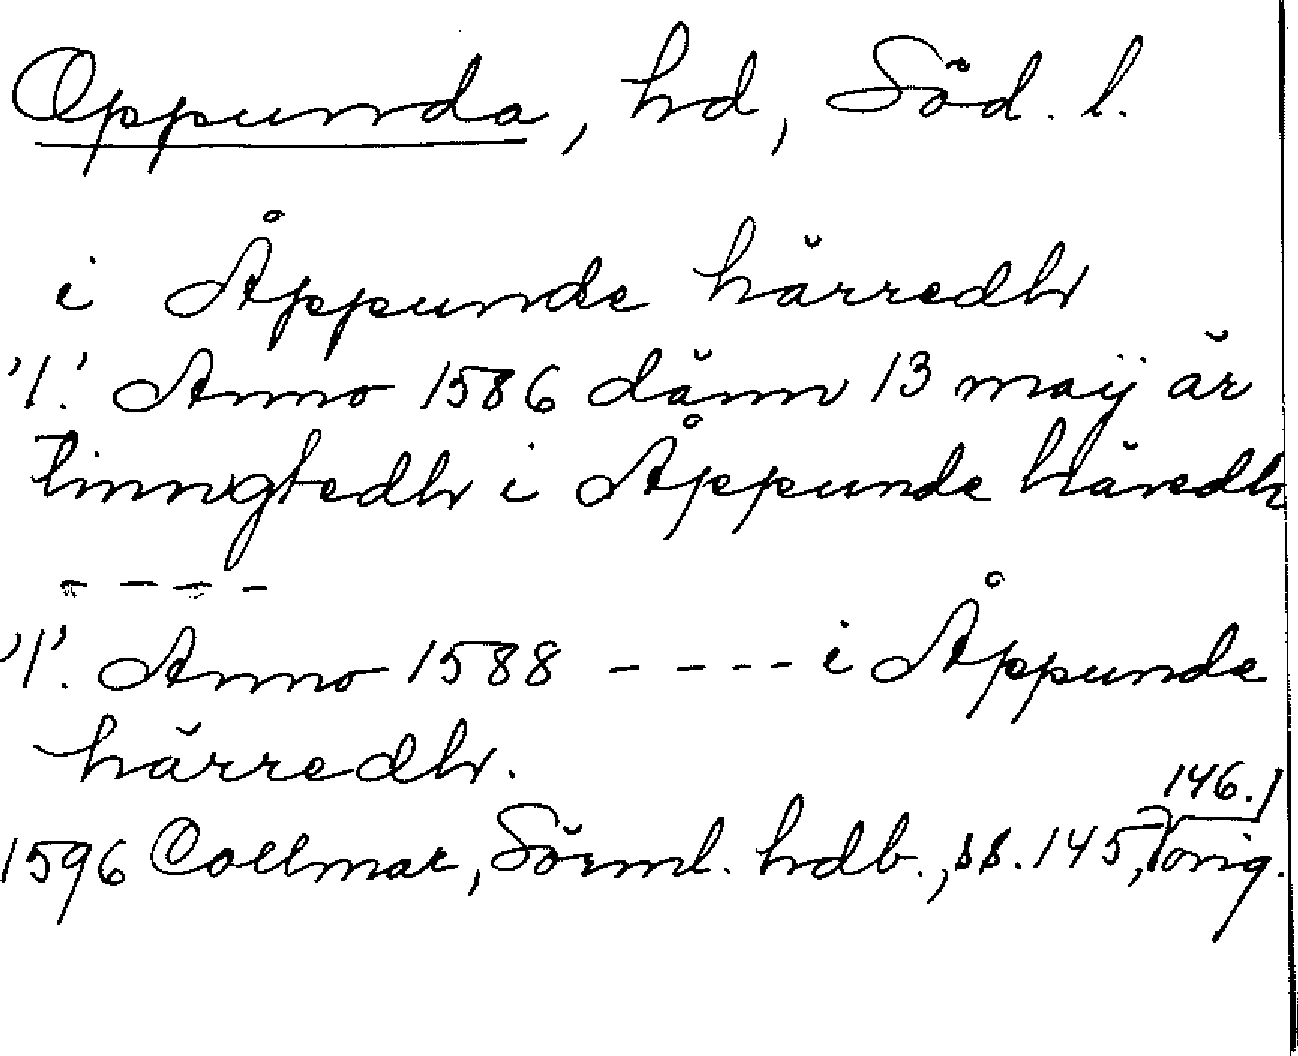 Oppunda, hd, Söd. l.
i Åppunde härredh
'1.' Anno 1586 dänn 13 maÿ är
tinngtedh i Åppunde häredh
- - - -
'1'. Anno 1588 - - - - i Åppunde
härredh.
146.
1596 Collmar, Sörml. hdb., ss. 145, orig.